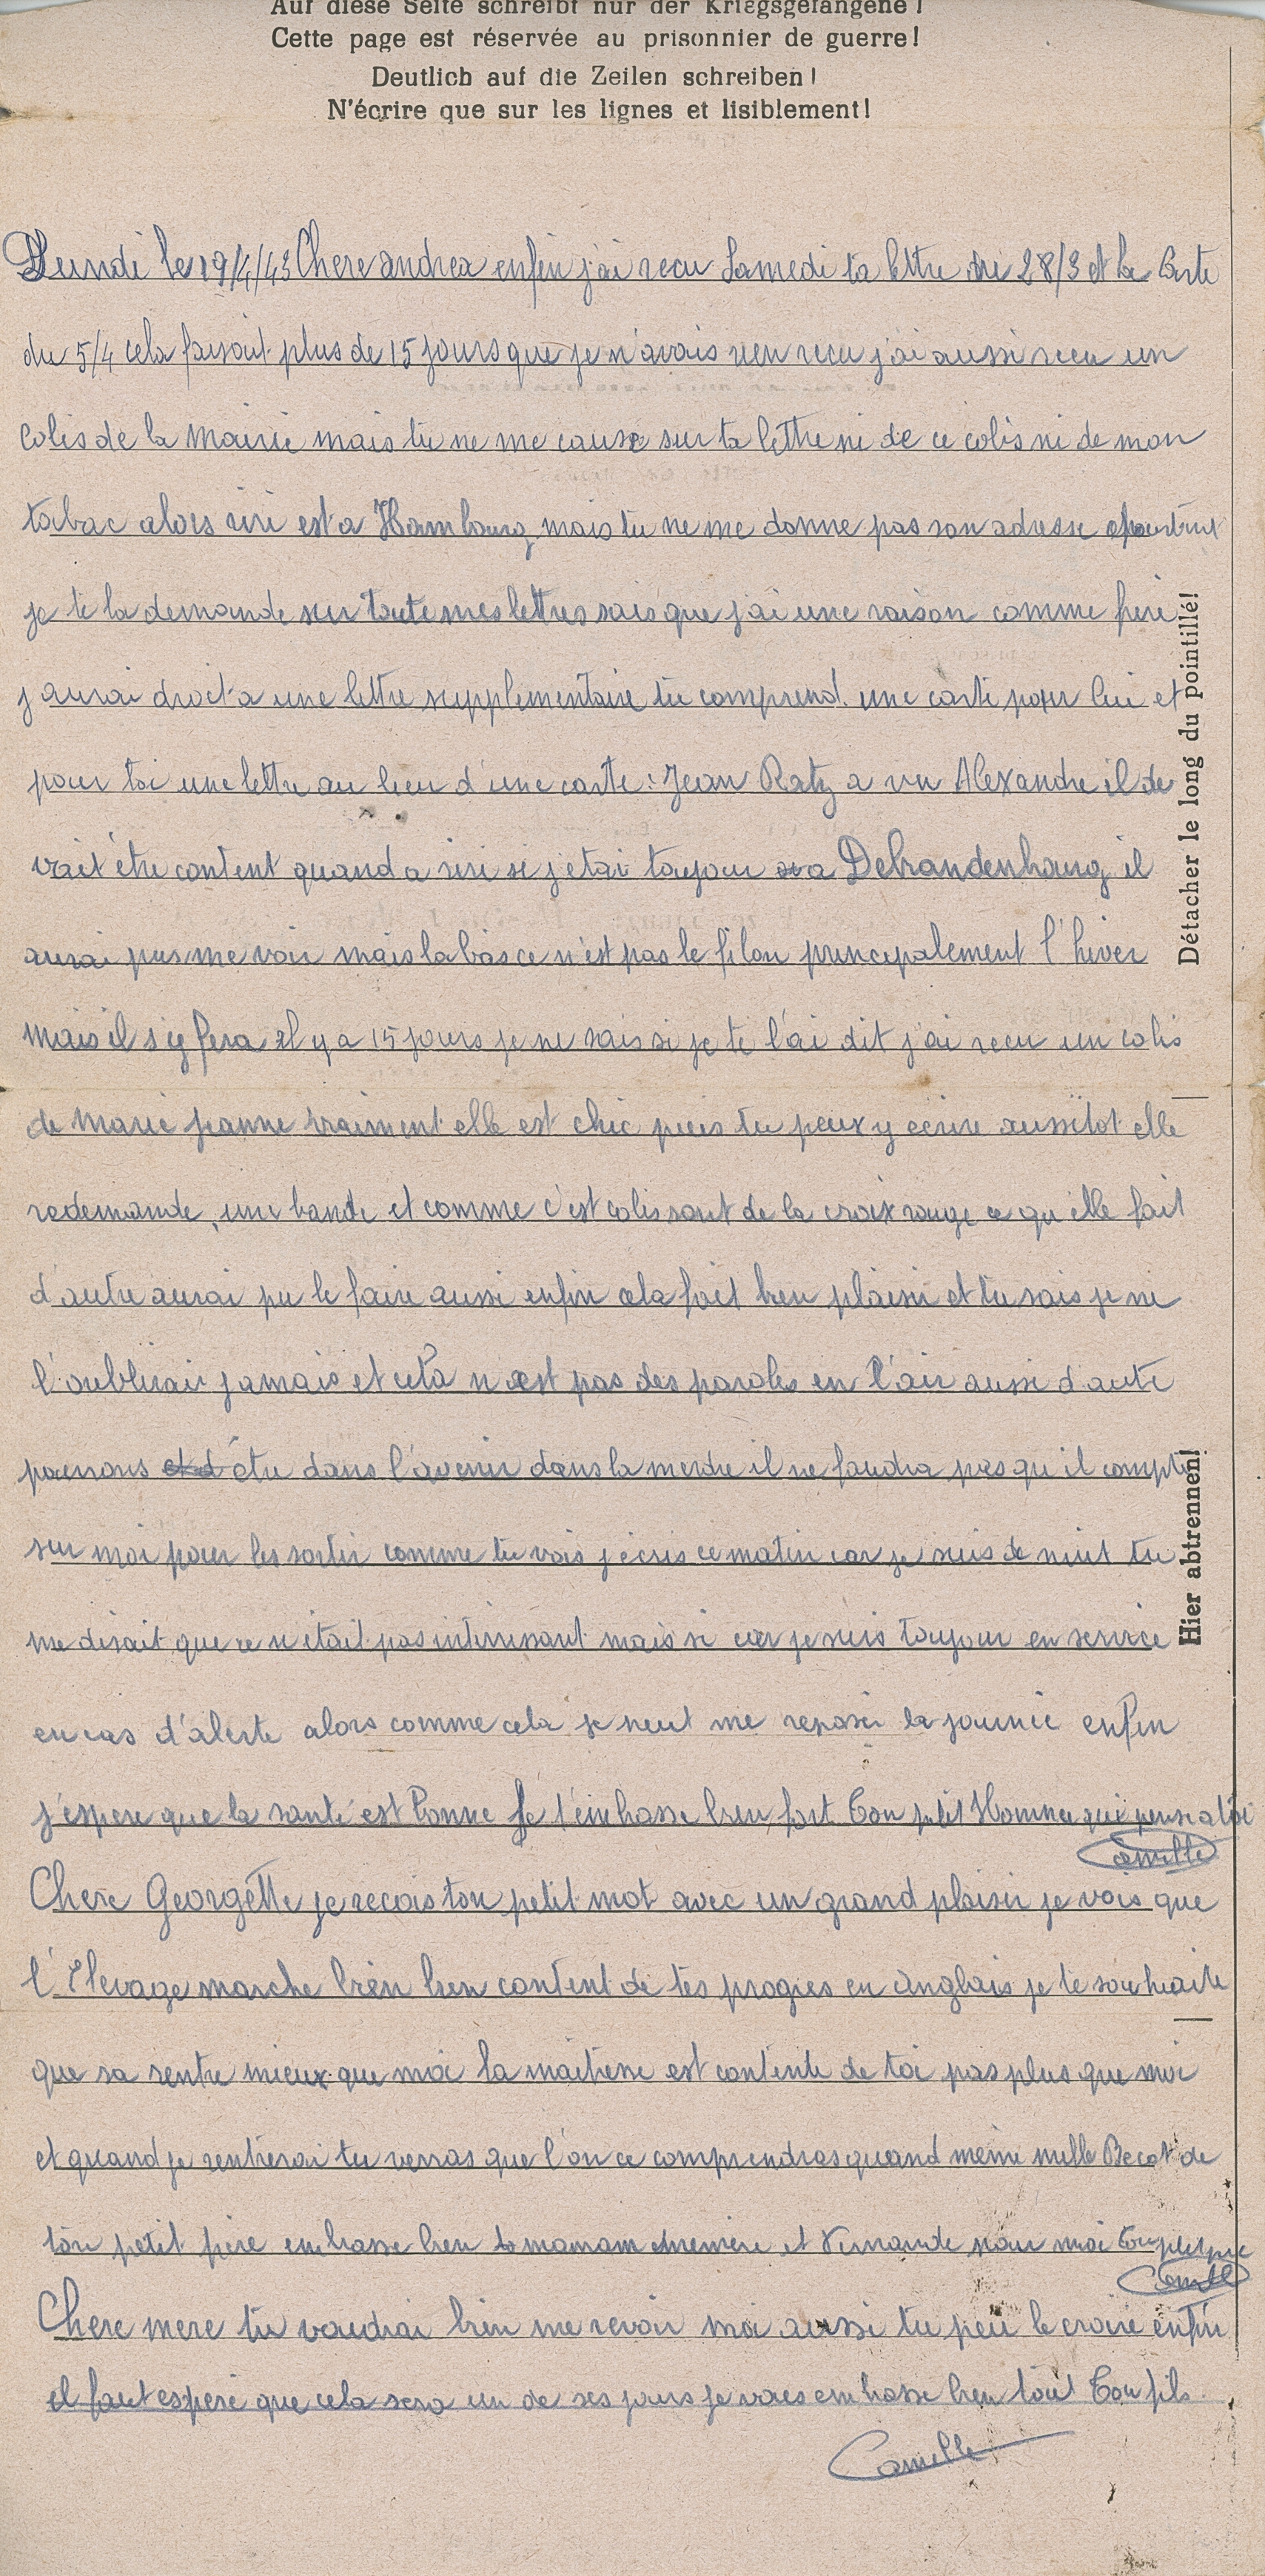 Auf diese Seite schreibt nur der Kriegsgefangene!
Cette page est réservée au prisonnier de guerre!
Deutlich auf die Zeilen schreiben!
N'écrire que sur les lignes et lisiblement!
Lundi le 19/4/43 Chere andrea enfin j'ai recu Samedi ta lettre du 28/3 et la Carte
du 5/4 cela faisait plus de 15 jours que je n'avais rien recu j'ai aussi recu un
Colis de la Mairie mais tu ne me cause sur ta lettre ni de ce colis ni de mon
tabac alors riri est a Hambourg mais tu ne me donne pas son adresse pourtant
je te la demande sur toute mes lettres sais que j'ai une raison comme frere
j aurai droit a une lettre supplementaire tu comprend. une carte pour lui et
pour toi une lettre au lieu d'une carte : Jean Ratz a vu Alexandre il de
vait être content quand a riri si j etai toujour a Debrandenbourg il
aurai pus me voir mais la bas ce n'est pas le filon principalement l'hiver
mais il s'y fera il y a 15 jours je ne sais si je te l'ai dit j'ai recu un colis
de marie jeanne vraiment elle est chic puis tu peux y ecrire aussitot elle
redemande une bande et comme c'est colis sont de la croix rouge ce qu'elle fait
d'autre aurai pu le faire aussi enfin cela fait bien plaisir et tu sais je ne
l'oublirai jamais et cela n est pas des paroles en l'air aussi d'autre
pourrons etre dans l'avenir dans la merdre il ne faudra pas qu'il compte
sur moi pour les sortir comme tu vois j'ecris ce matin car je suis de nuit tu
me disait que ce n'était pas interressant mais si car je suis toujour en service
en cas d'alerte alors comme cela je peut me reposer la journée enfin
j'espere que la santé est bonne Je t'embrasse bien fort Ton petit Homme qui pense a toi
Camille
Chere Georgette je recois ton petit mot avec un grand plaisir je vois que
l'Elevage marche bien bien content de tes progres en Anglais je te souhaite
que sa rentre mieux que moi la maitresse est contente de toi pas plus que moi
et quand je rentrerai tu verras que l'on ce comprendras quand même mille Becot de
ton petit père embrasse bien ta maman memere et Fernande pour moi Ton petit pere
Camille
Chere mere tu voudrai bien me revoir moi aussi tu peu le croire enfin
il faut esperé que cela sera un de ses jours je vous embrasse bien tout Ton fils
Camille
Détacher le long du pointillé!
Hier abtrennen!